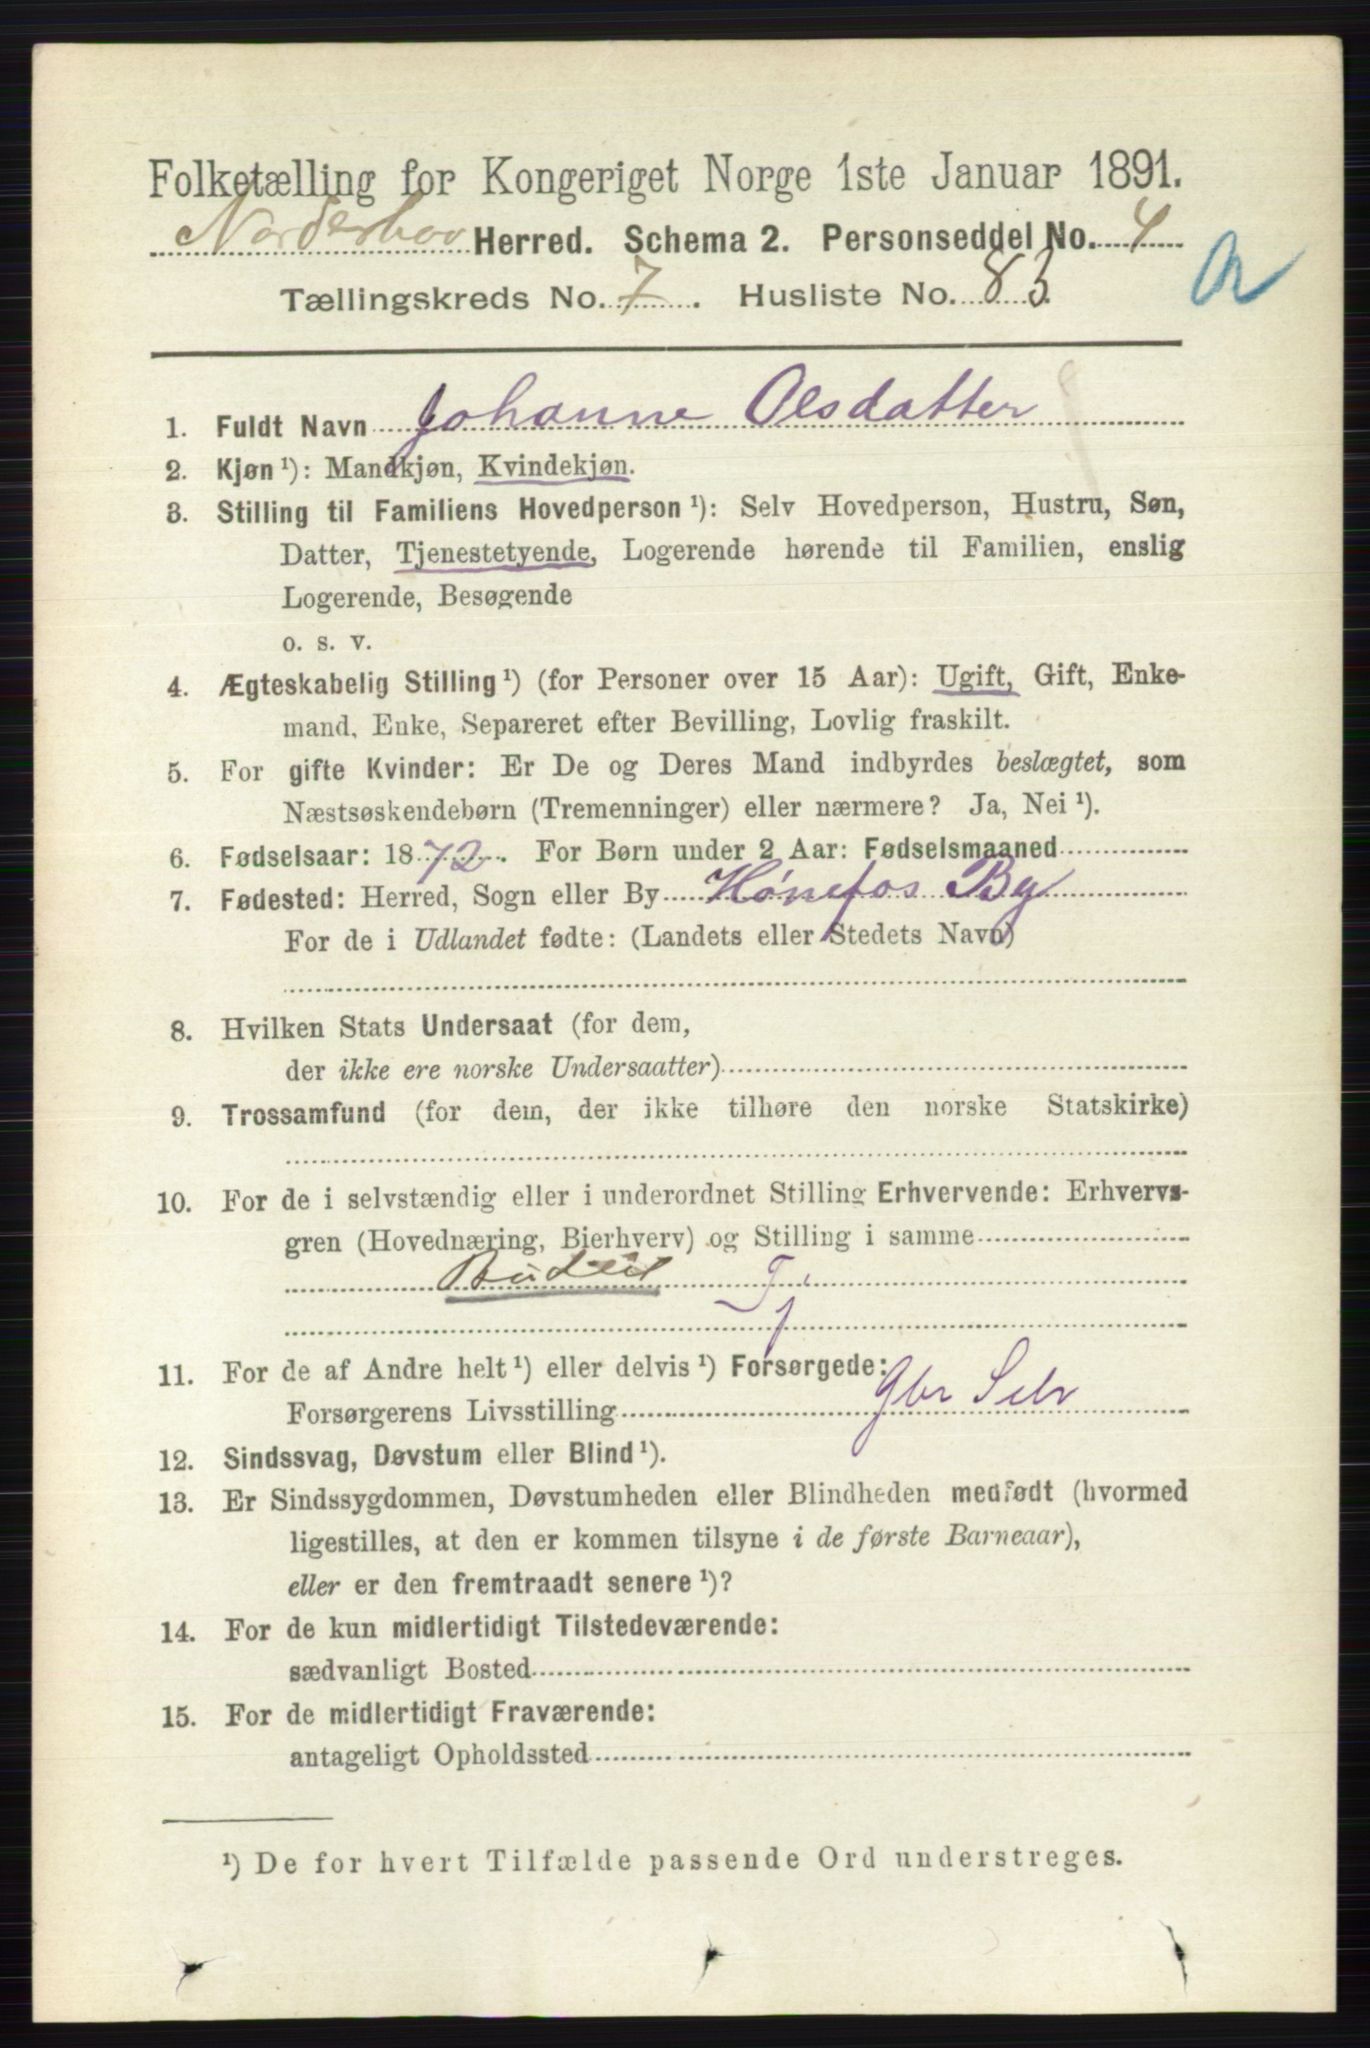 Folketælling for Kongeriget Norge 1ste Januar 1891.
Norderhov Herred. Schema 2. Personseddel No. 4
Tællingskreds No. 7. Husliste No. 83
1. Fuldt Navn Johanne Olsdatter
2. Kjøn ¹): Mandkjøn, Kvindekjøn.
3. Stilling til Familiens Hovedperson ¹): Selv Hovedperson, Hustru, Søn,
Datter, Tjenestetyende, Logerende hørende til Familien, enslig
Logerende, Besøgende
o. s. v.
4. Ægteskabelig Stilling ¹) (for Personer over 15 Aar): Ugift, Gift, Enke-
mand, Enke, Separeret efter Bevilling, Lovlig fraskilt.
5. For gifte Kvinder: Er De og Deres Mand indbyrdes beslægtet, som
Næstsøskendebørn (Tremenninger) eller nærmere? Ja, Nei ¹).
6. Fødselsaar: 1872. For Børn under 2 Aar: Fødselsmaaned
7. Fødested: Herred, Sogn eller By Hønefos By
For de i Udlandet fødte: (Landets eller Stedets Navn)
8. Hvilken Stats Undersaat (for dem,
der ikke ere norske Undersaatter)
9. Trossamfund (for dem, der ikke tilhøre den norske Statskirke)
10. For de i selvstændig eller i underordnet Stilling Erhvervende: Erhvervs-
gren (Hovednæring, Bierhverv) og Stilling i samme
Budeie Tj
11. For de af Andre helt ¹) eller delvis ¹) Forsørgede:
Forsørgerens Livsstilling Gbr Selv
12. Sindssvag, Døvstum eller Blind ¹).
13. Er Sindssygdommen, Døvstumheden eller Blindheden medfødt (hvormed
ligestilles, at den er kommen tilsyne i de første Barneaar),
eller er den fremtraadt senere ¹)?
14. For de kun midlertidigt Tilstedeværende:
sædvanligt Bosted
15. For de midlertidigt Fraværende:
antageligt Opholdssted
¹) De for hvert Tilfælde passende Ord understreges.